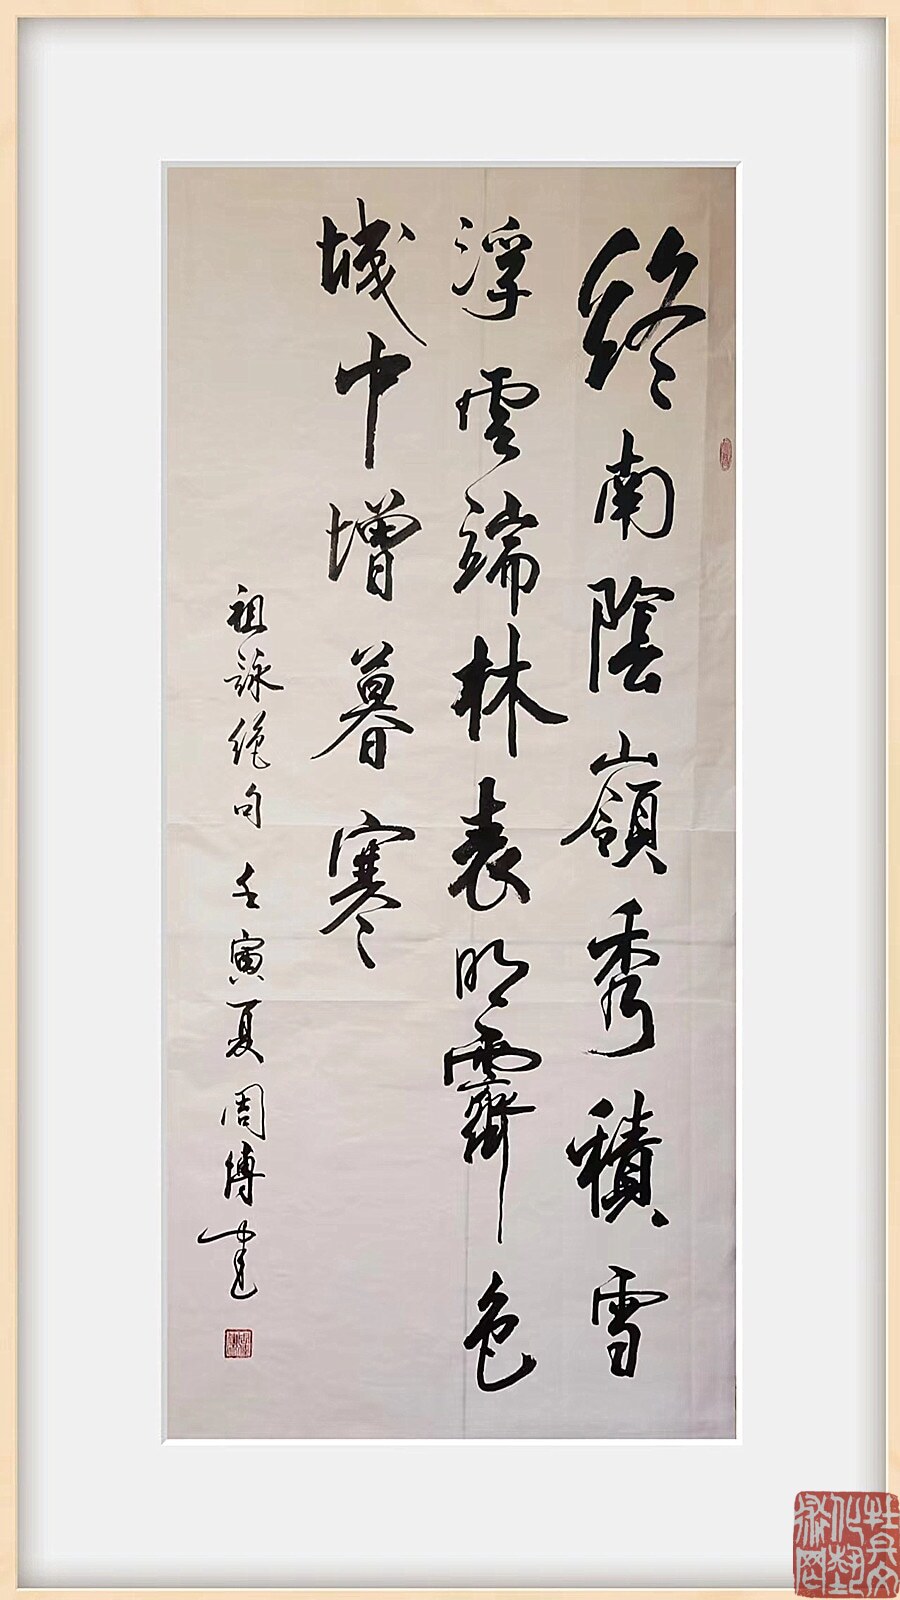 終南陰嶺秀積雪
浮雲端林表明霽色
城中增暮寒
祖詠絕句 壬寅夏 周博